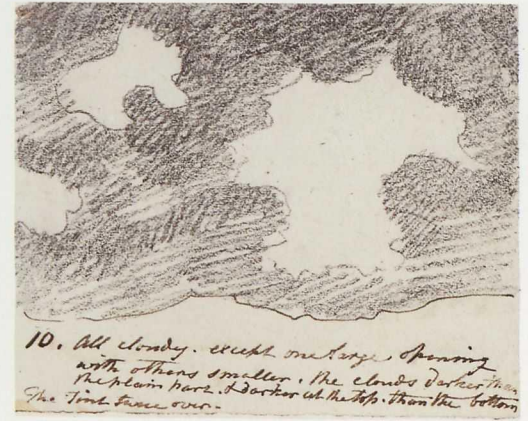 10. All cloudy. except one large opening
with others smaller. the clouds darker than
the plain part. & darker at the top. than the bottom
The Tint twice over.